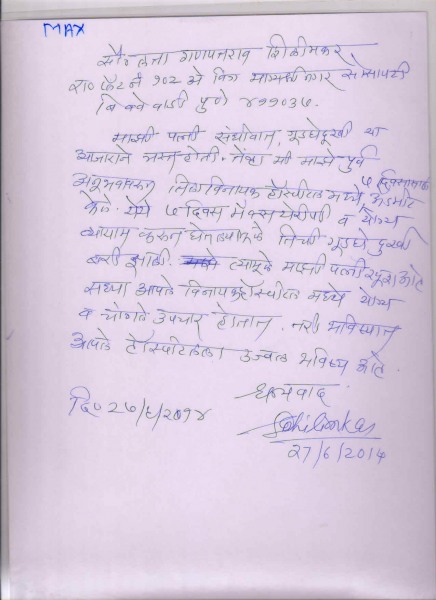 MAX
सौ. लता गणपतराव शिळीमकर
रा० फ्लॅट नं १०२ ओ विंग सोसायटी
बिबवेवाडी पुणे ४११०३७.
माझी पत्नी संधीवात, गुडघेदुखी या
आजाराने त्रस्त होती. तेंव्हा मी माझे पूर्व
अनुभवावरून तिला विनायक हॉस्पीटल मध्ये ७ अॅडमीट
केले. येथे ७ दिवस मॅक्स थेरीपी व योग्य
व्यायाम करून घेतल्यामुळे तिची गुडघे दुखी
बरी झाली. त्यामुळे माझी पत्नी खुश आहे
सध्या आपले विनायक हॉस्पीटल मध्ये योग्य
व चांगले उपचार होतात. तरी भविष्यात
आपले हॉस्पिटलला उज्वल भविष्य आहे.
धन्यवाद.
दि० २७/६/२०१४
27/6/2014